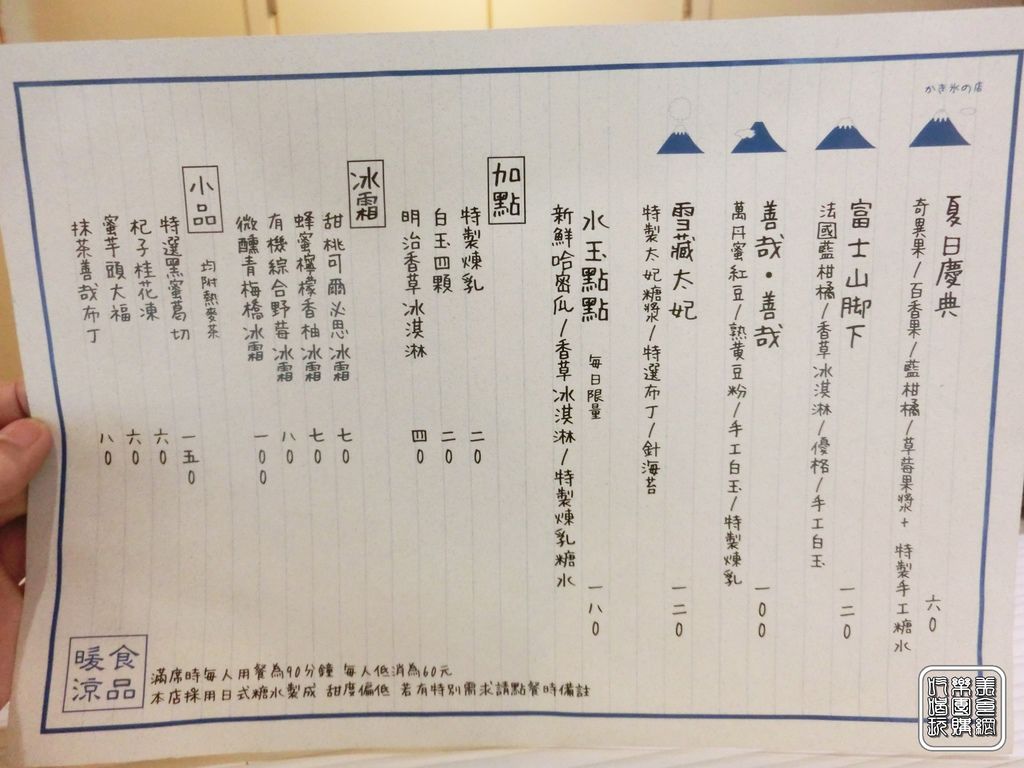 かき氷の店
夏日慶典 六0
奇異果/百香果/藍柑橘/草莓果漿+ 特製手工糖水
富士山脚下 一二0
法國藍柑橘/香草冰淇淋/優格/手工白玉
善哉・善哉 一00
萬丹蜜紅豆/熟黄豆粉/手工白玉/特製煉乳
雪藏太妃 一二0
特製太妃糖漿/特選布丁/針海苔
水玉點點 每日限量 一八0
新鮮哈密瓜/香草冰淇淋/特製煉乳糖水
加點
特製煉乳 二0
白玉四顆 二0
明治香草冰淇淋 四0
冰霜
甜桃可爾必思冰霜 七0
蜂蜜檸檬香柚冰霜 七0
有機綜合野莓冰霜 八0
微醺青梅橋冰霜 一00
小品 均附熱麥茶
特選黑蜜葛切 一五0
杞子桂花凍 六0
蜜芋頭大福 六0
抹茶善哉布丁 八0
暖涼食品
滿席時每人用餐為90分鐘 每人低消為60元
本店採用日式糖水製成 甜度偏低 若有特別需求請點餐時備註